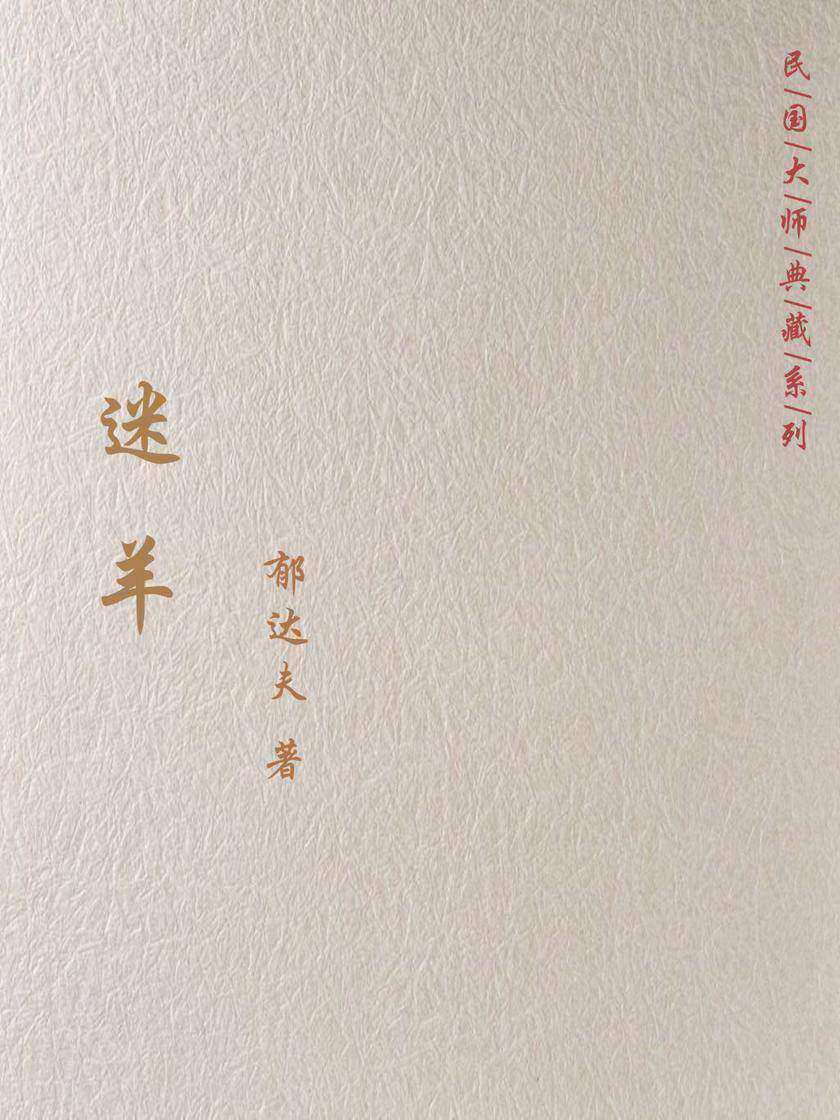 民/国/大/师/典/藏/系/列
迷羊
郁达夫 著